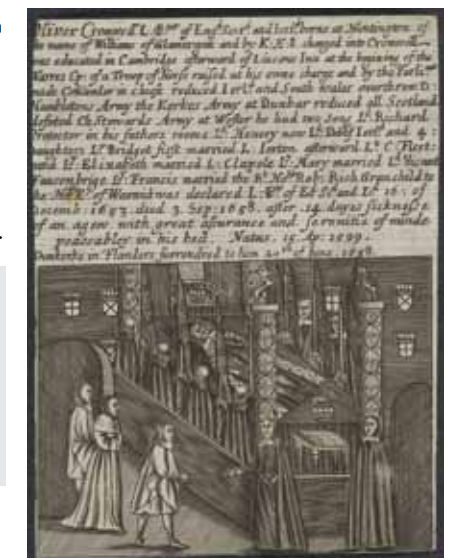 Oliver Cromwell L. of Eng: Scot: and Irel: borne at Huntington of
the name of Williams of Glamorgan and by K. H. 8. changed into Cromwell
was educated in Cambridge afterward of Lincons Inn at the begining of the
Warres Cp: of a Troop of Horse raised at his owne charge and by the Parli:
made Comander in chiefe reduced Irel: and South Wales overthrew D:
Hambletons Army the Kerkes Army at Dunbar reduced all Scotland
defeted Ch. Stewards Army at he had two Sons L: Richard
Protector in his fathers roome L: Henery now L: Irel: and 4:
daughters L: Bridget first married L: Ierton afterward L: C Fleet:
wood L: Elizabeth married L: Clapole L: Mary married L: Vicount
Fauconbrige L: Francis married the Rob: Rich Grandchild to
the of Warwick was declared L: of En: Sc: and Ir: 16: of
Decemb: 1653. died 3. Sep: 1658. after .14. dayes sicknesse
of an agew with great assurance and serenitie of minde
peaceably in his bed. Natus. 15. Ap: 1599.
Dunkerke in Flanders surrendred to him of June. 1658.